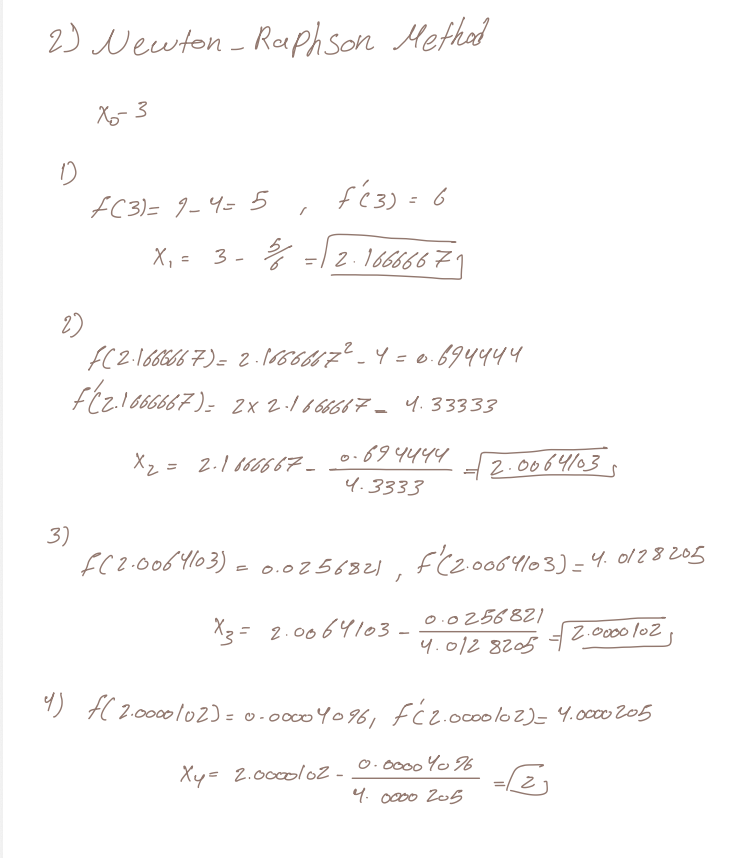 2) Newton-Raphson Method
x₀-3
1)
f(3)= 9-4= 5 , f'(3) = 6
x₁ = 3 - 5/6 = 2.1666667
2)
f(2.1666667)= 2.1666667² - 4 = 0.694444
f'(2.1666667)= 2x 2.1666667 - 4.33333
x₂ = 2.1666667 - 0.694444/4.3333 = 2.0064103
3)
f(2.0064103) = 0.0256821 , f'(2.0064103) = 4.0128205
x₃ = 2.0064103 - 0.0256821/4.0128205 = 2.0000102
4) f(2.0000102) = 0.00004096, f'(2.0000102)= 4.0000205
x₄ = 2.0000102 - 0.00004096/4.0000205 = 2